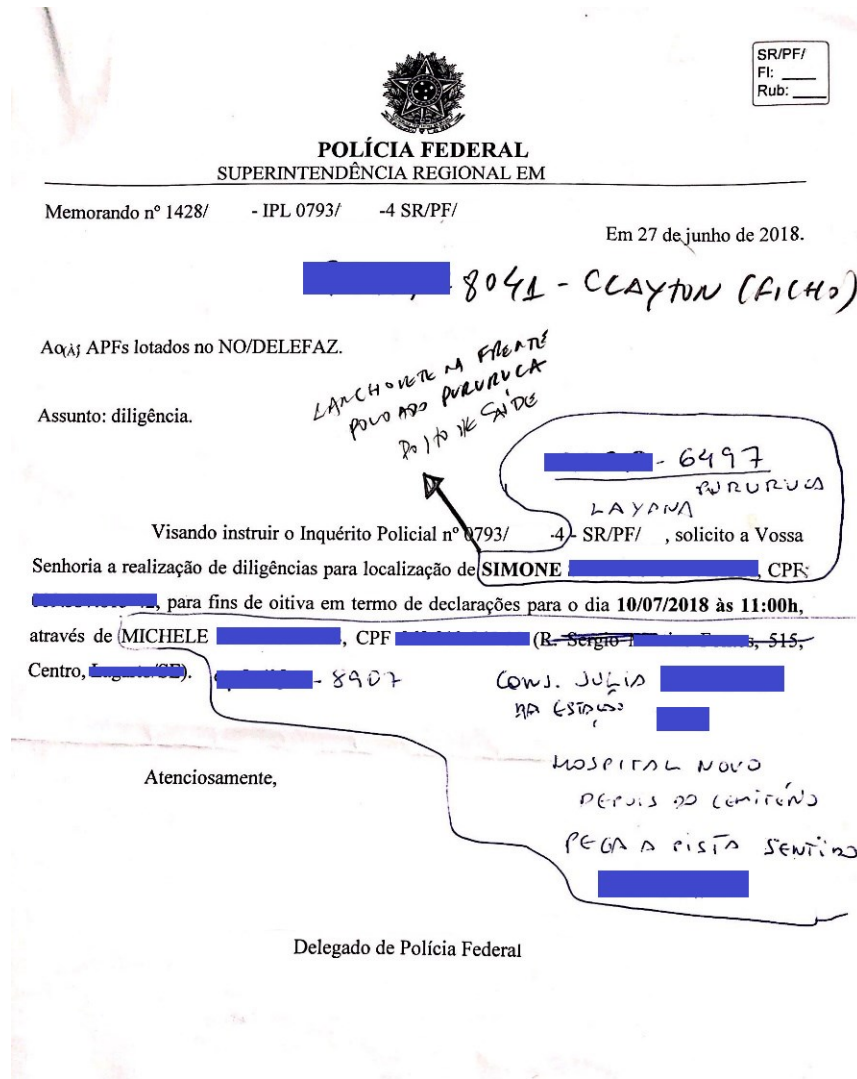 SR/PF/
Fl: ____
Rub: ____
POLÍCIA FEDERAL
SUPERINTENDÊNCIA REGIONAL EM
Memorando nº 1428/ - IPL 0793/ -4 SR/PF/
Em 27 de junho de 2018.
8041 - CLAYTON (FILHO)
Ao(À) APFs lotados no NO/DELEFAZ.
LANCHONETE NA FRENTE
POVOADO PURURUCA
POSTO DE SAÚDE
Assunto: diligência.
- 6497
PURURUCA
LAYANA
Visando instruir o Inquérito Policial nº 0793/ -4 - SR/PF/ , solicito a Vossa
Senhoria a realização de diligências para localização de SIMONE , CPF:
, para fins de oitiva em termo de declarações para o dia 10/07/2018 às 11:00h,
através de MICHELE , CPF (R. Sergio , 515,
Centro, ).
- 8907
CONJ. JULIA
HOSPITAL NOVO
DEPOIS DO CEMITÉRIO
PEGA A PISTA SENTIDO
Atenciosamente,
Delegado de Polícia Federal